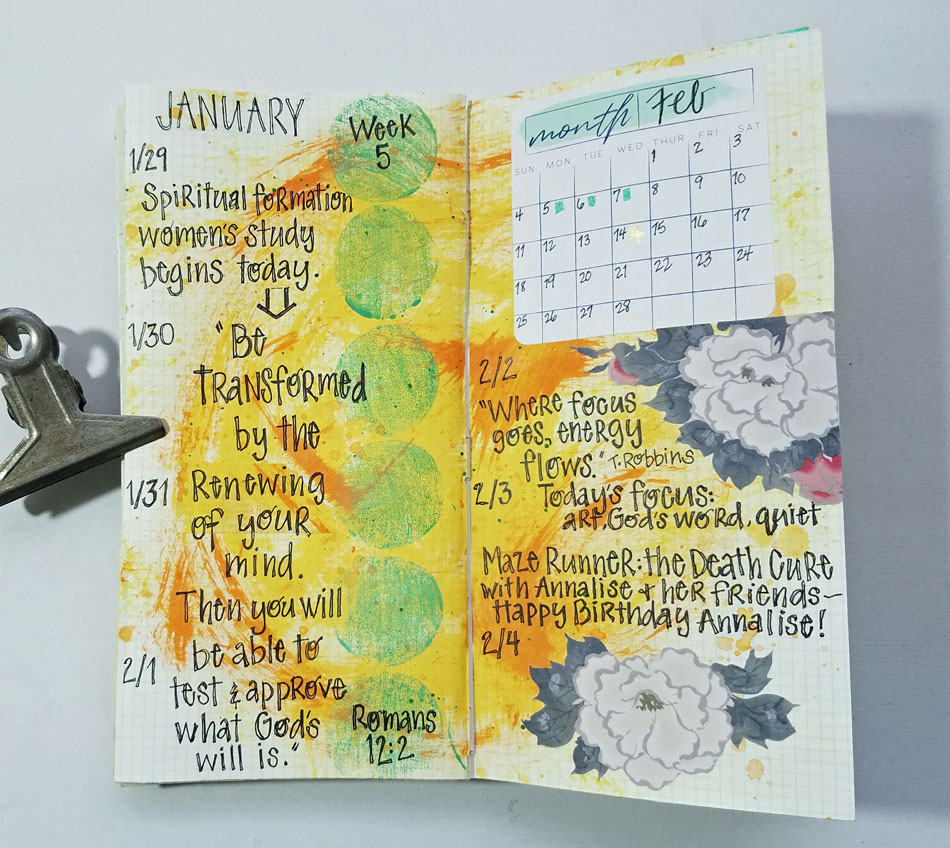 JANUARY
Week
5
1/29
Spiritual formation
women's study
begins today.
1/30
"Be
TRANSformed
by the
1/31
Renewing
of your
mind.
Then you will
be able to
2/1
test & approve
what God's
will is."
Romans
12:2
month Feb
SUN MON TUE WED THUR FRI SAT
1 2 3
4 5 6 7 8 9 10
11 12 13 14 15 16 17
18 19 20 21 22 23 24
25 26 27 28
2/2
"Where focus
goes, energy
flows." T. Robbins
2/3 Today's focus:
art, God's word, quiet
Maze Runner: the Death Cure
with Annalise & her friends~
Happy Birthday Annalise!
2/4